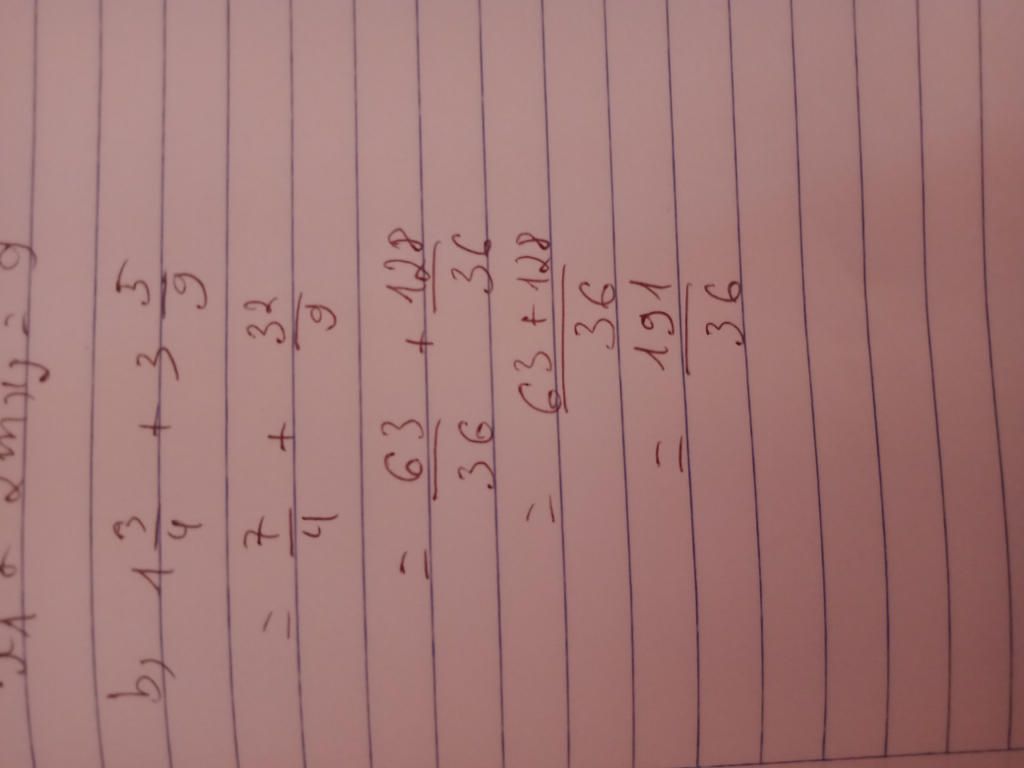 b, 1 3/4 + 3 5/9
= 7/4 + 32/9
= 63/36 + 128/36
= 63 + 128/36
= 191/36